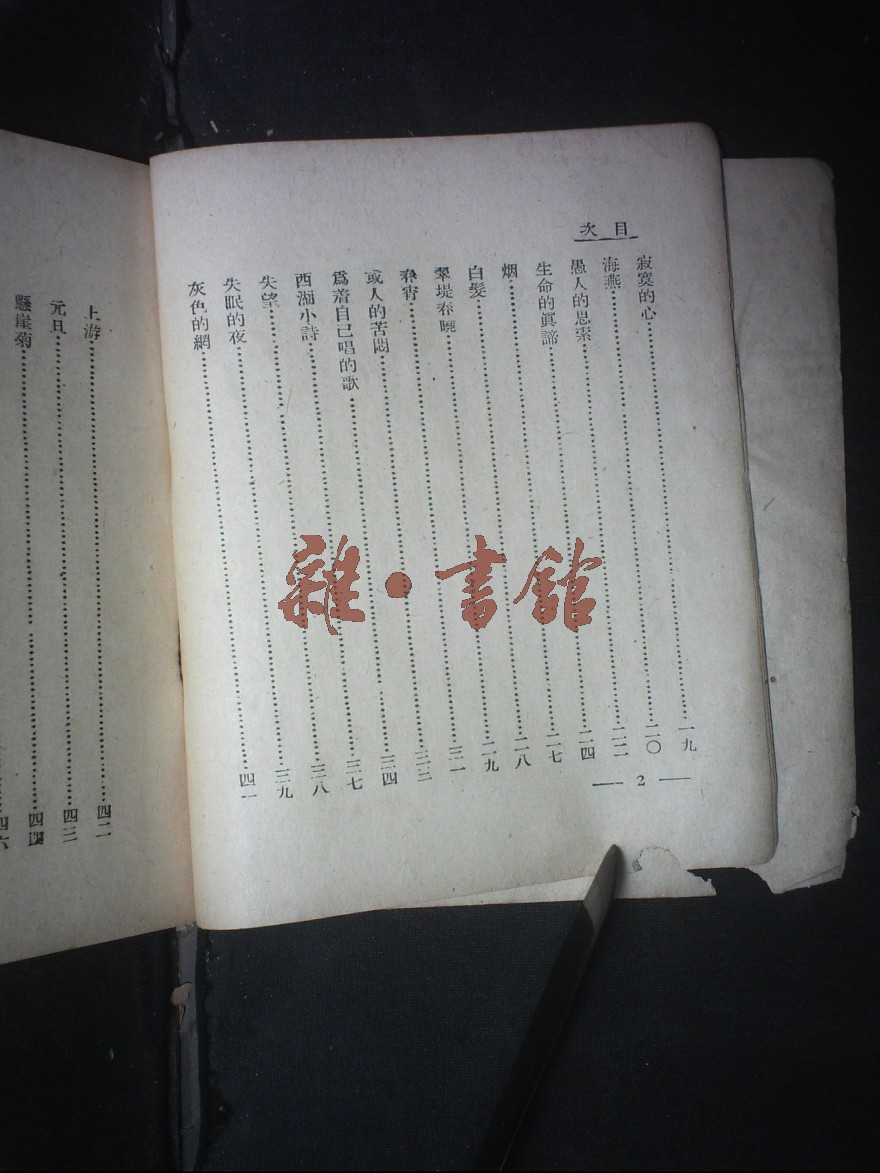 目次
寂寞的心……一九
海燕……二〇
愚人的思索……二二
生命的眞諦……二四
烟……二七
白髮……二八
翠堤春曉……二九
春宵……三一
或人的苦悶……三三
爲着自己唱的歌……三四
西湖小詩……三七
失望……三八
失眠的夜……三九
灰色的網……四一
— 2 —
上游……四二
元旦……四三
懸崖菊……四四
四六
雜·書館